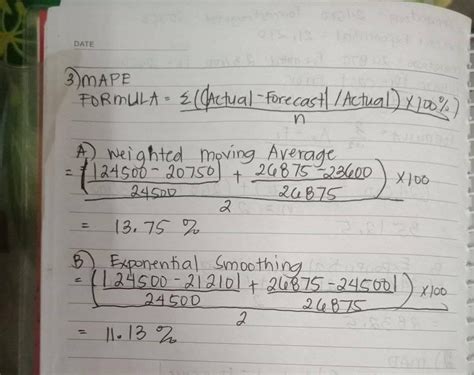 DATE
3) MAPE
FORMULA = Σ((|Actual - Forecast| / Actual) × 100%)
n
A) Weighted Moving Average
= (|24500 - 20750| + 26875 - 23600|) × 100
24500 26875
2
= 13.75 %
B) Exponential Smoothing
= (|24500 - 21210| + 26875 - 24500|) × 100
24500 26875
2
= 11.13 %